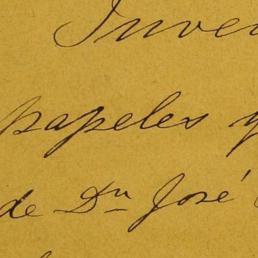 Inven
papeles y
de Dn José